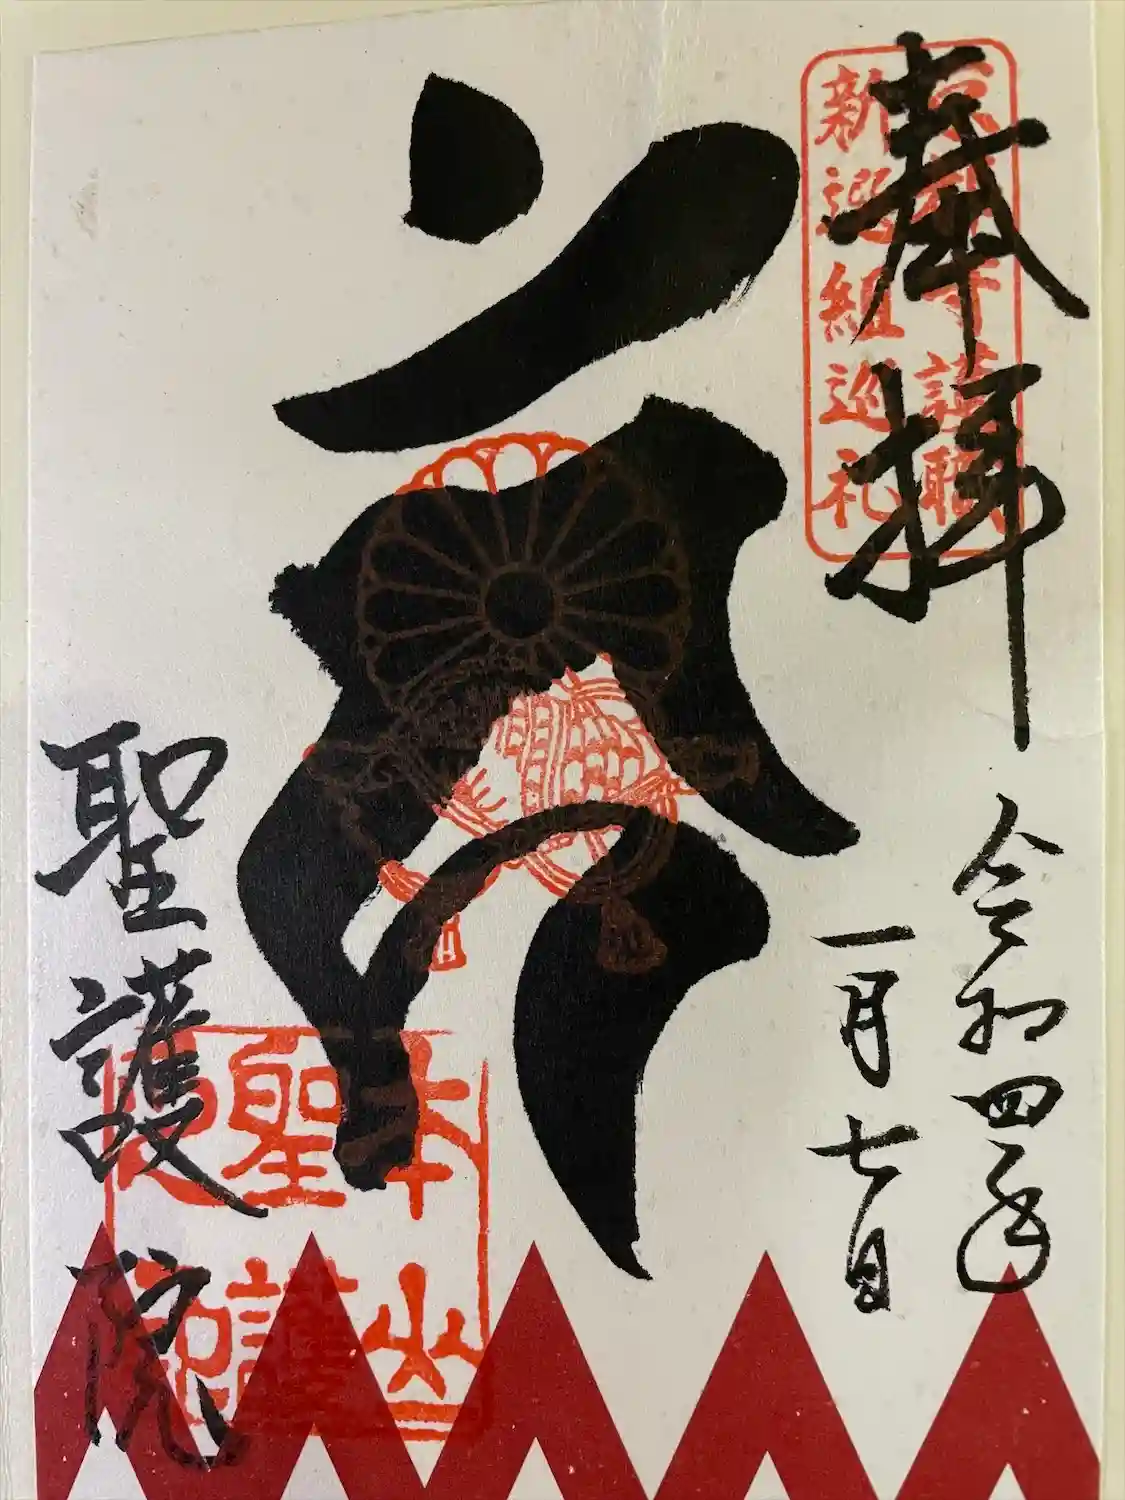 奉拝
京都守護職
新選組巡礼
令和四年
一月七日
本山
聖護
聖護院